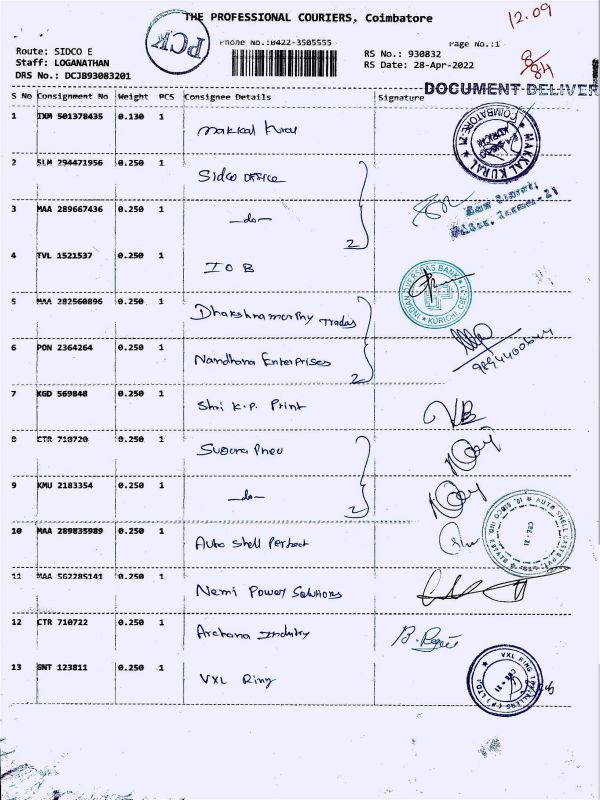 THE PROFESSIONAL COURIERS, Coimbatore
12.09
PCK
Phone No.:0422-3505555
Page No.:1
Route: SIDCO E
RS No.: 930832
8/84
Staff: LOGANATHAN
RS Date: 28-Apr-2022
DRS No.: DCJB93083201
DOCUMENT DELIVER
S No Consignment No Weight PCS Consignee Details Signature
1 IXM 501378435 0.130 1 Makkal Kural
MAKKAL KURAL COIMBATORE-21
2 SLM 294471956 0.250 1 Sidco office
3 MAA 289667436 0.250 1 —do—
2
4 TVL 1521537 0.250 1 IOB
INDIAN OVERSEAS BANK KURICHI, CBE-21
5 MAA 282560896 0.250 1 Dhakshnamorthy Trades
6 PON 2364264 0.250 1 Nandhana Enterprises
2
7 KGD 569848 0.250 1 Shri K.P. Print
VB
8 CTR 710720 0.250 1 Sugura Pneu
9 KMU 2183354 0.250 1 —do—
2
10 MAA 289835989 0.250 1 Auto Shell Perfect
AUTO SHELL CASTS PVT. LTD. CBE - 21
11 MAA 562285141 0.250 1 Nemi Power Solutions
12 CTR 710722 0.250 1 Archana Industry
13 GNT 123811 0.250 1 VXL Ring
VXL RING TRAVELLERS (P) LTD. CBE - 21